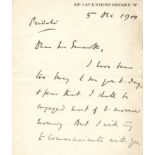 CAVENDISH SQUARE. W
Private
5 Dec 1900
Dear Mr
I have been
too busy to see you to-day,
and fear that I shall be
engaged most of to-morrow
morning. But I wish
to communicate with you